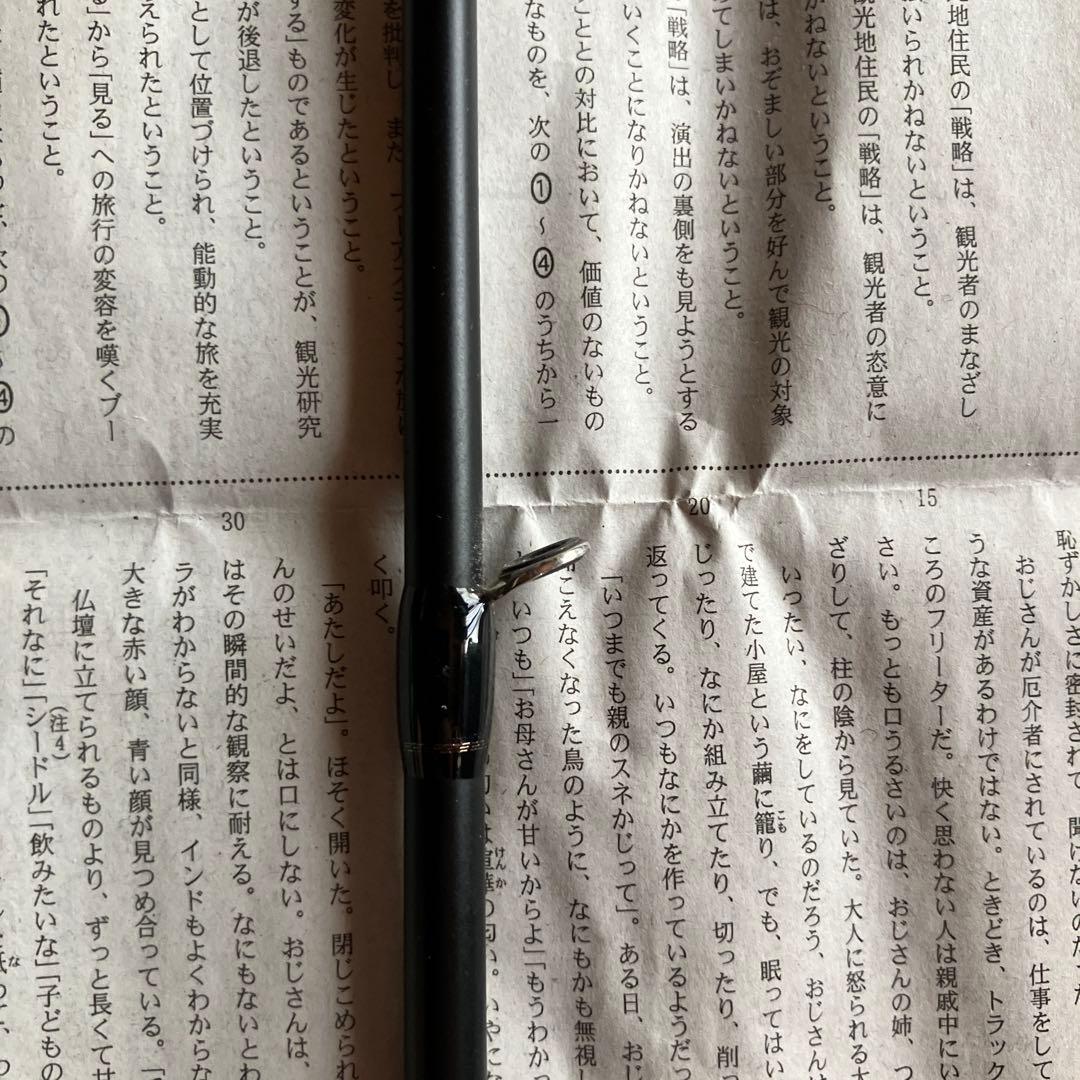 光地住民の「戦略」は、観光者のまなざし
いられかねないということ。
観光地住民の「戦略」は、観光者の恣意に
かねないということ。
は、おぞましい部分を好んで観光の対象
てしまいかねないということ。
「戦略」は、演出の裏側をも見ようとする
いくことになりかねないということ。
こととの対比において、価値のないもの
なものを、次の①～④のうちから一
を批判し、また
変化が生じたということ。
する」ものであるということが、観光研究
が後退したということ。
として位置づけられ、能動的な旅を充実
えられたということ。
る」から「見る」への旅行の変容を嘆くブー
れたということ。
④の
恥ずかしさに密封されて、聞けないのだった
おじさんが厄介者にされているのは、仕事をして
うな資産があるわけではない。ときどき、トラック
ころのフリーターだ。快く思わない人は親戚中にい
15
さい。もっとも口うるさいのは、おじさんの姉、つ
ざりして、柱の陰から見ていた。大人に怒られる大
いったい、なにをしているのだろう、おじさんは
で建てた小屋という繭に籠こもり、でも、眠ってはい
じったり、なにか組み立てたり、切ったり、削っ
20
返ってくる。いつもなにかを作っているようだっ
「いつまでも親のスネかじって」。ある日、おじ
こえなくなった鳥のように、なにもかも無視し
いつも」「お母さんが甘いからよ」「もうわかっ
けんか
の匂い。いやにな
く叩く。
「あたしだよ」。ほそく開いた。閉じこめられ
んのせいだよ、とは口にしない。おじさんは、
30
はその瞬間的な観察に耐える。なにもないとわ
ラがわからないと同様、インドもよくわからな
大きな赤い顔、青い顔が見つめ合っている。
仏壇に立てられるものより、ずっと長くてせ
(注4)
「それなに」「シードル」「飲みたいな」「子どもの